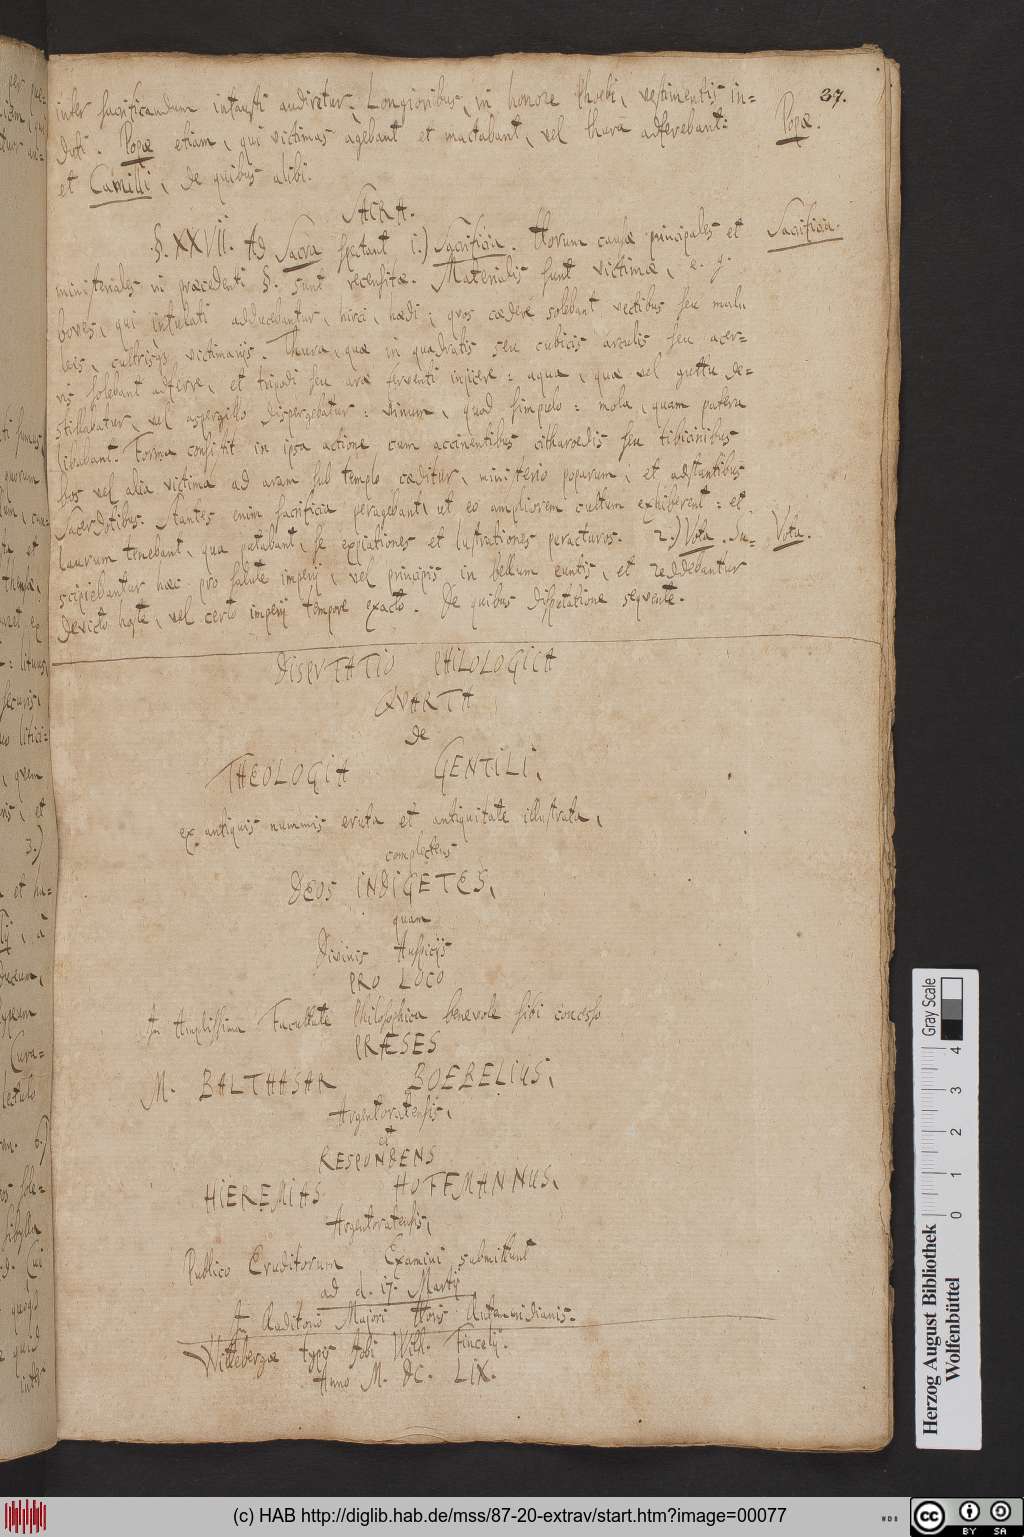 37.
inter sacrificandum infausti audiretur. Longioribus, in honore Phoebi, vestimentis in=
duti. Popæ etiam, qui victimas agebant et mactabant, vel thura adferebant:
Popæ.
et Camilli, de quibus alibi.
SACRA.
§. XXVII. Ad Sacra spectant 1.) Sacrificia. Horum causæ principales et
Sacrificia.
ministeriales in præcedenti §. sunt recensitæ. Materialis sunt victimæ, e. g.
boves, qui intulati adducebantur, hirci, hædi; qvos cædere solebant vectibus seu malu
leis, cultrisqs victimarijs. Thura, quæ in quadratis seu cubicis arculis seu acer=
ris solebant adferre, et tripodi seu aræ ferventi injicere: aqua, quæ vel guttu de=
stillabatur, vel aspergillo dispergebatur: vinum, quod simpulo: mola, quam patera
libabant. Forma consistit in ipsa actione cum accinentibus citharoedis seu tibicinibus
bos vel alia victima ad aram sub templo cæditur, ministerio poparum, et adstantibus
Sacerdotibus. Stantes enim sacrificia peragebant, ut eo ampliorem cultum exhiberent: et
laurum tenebant, qua putabant, se expiationes et lustrationes peracturos. 2.) Vota. Su=
Vota.
scipiebantur hæc pro salute imperij, vel principis in bellum euntis, et reddebantur
devicto hoste, vel certo imperij tempore exacto. De quibus disputatione seqvente.
DISPUTATIO PHILOLOGICA
QVARTA
de
THEOLOGIA GENTILI,
ex antiquis nummis eruta et antiquitate illustrata,
complectens
DEOS INDIGETES,
quam
Divinis Auspicijs
PRO LOCO
In Amplissima Facultate Philosophica benevole sibi concesso
PRÆSES
M. BALTHASAR BOEBELIUS,
Argentoratensis,
et
RESPONDENS
HIEREMIAS HOFFMANNUS,
Argentoratensis,
Publico Eruditorum Examini submittunt
ad d. 17. Martij
In Auditorio Majori Horis Antemeridianis.
Wittebergæ typis Jobi Wilh. Fincelij.
Anno M. DC. LIX.
Gray Scale
0 1 2 3 4
Herzog August Bibliothek
Wolfenbüttel
(c) HAB http://diglib.hab.de/mss/87-20-extrav/start.htm?image=00077
cc BY SA